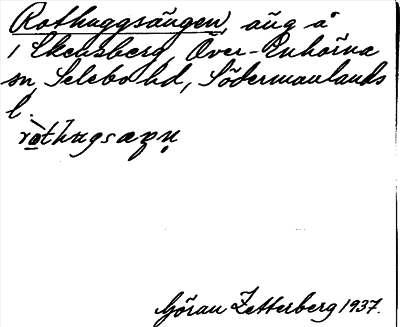 Rothuggsängen, äng å
1 Ekensberg, Över-Enhörna
sn, Selebo hd, Södermanlands
l.
ròthugsæŋn̥
Göran Zetterberg 1937.